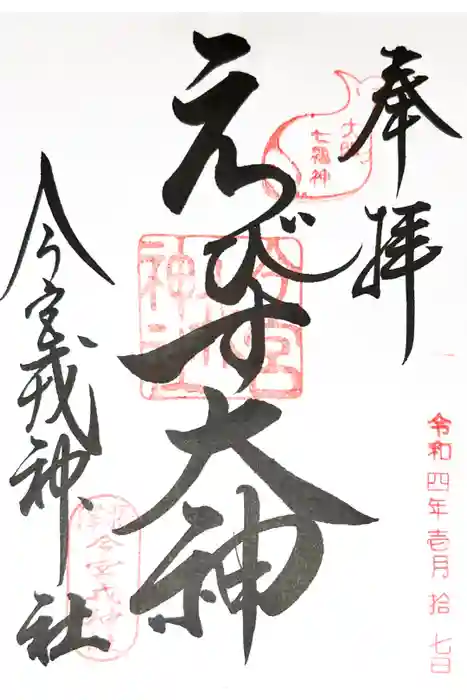 奉拝
大阪
七福神
令和四年壱月拾七日
えびす大神
今宮戎神社
今宮戎神社